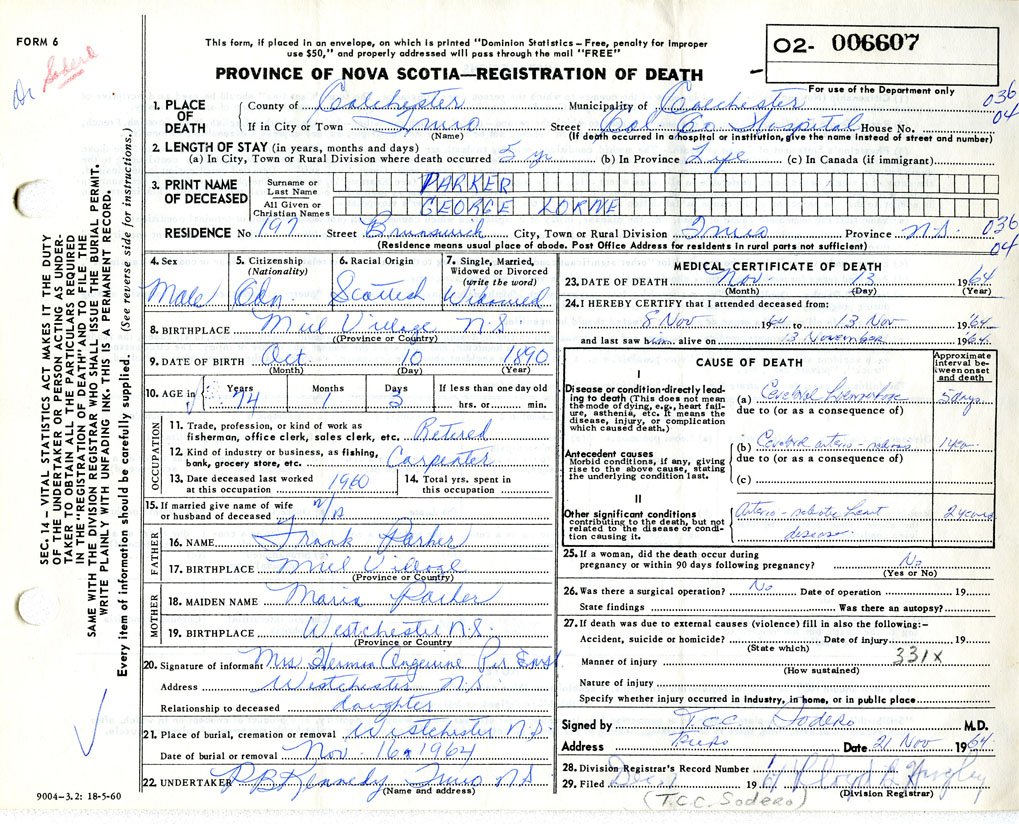 FORM 6
Dr Sodero
This form, if placed in an envelope, on which is printed "Dominion Statistics – Free, penalty for improper
use $50," and properly addressed will pass through the mail "FREE"
O2- 006607
PROVINCE OF NOVA SCOTIA—REGISTRATION OF DEATH
For use of the Department only
1. PLACE OF DEATH County of Colchester Municipality of Colchester 036
If in City or Town Truro Street Col. Co. Hospital House No. 04
(Name) (If death occurred in a hospital or institution, give the name instead of street and number)
2. LENGTH OF STAY (in years, months and days)
(a) In City, Town or Rural Division where death occurred 5 yr (b) In Province Life (c) In Canada (if immigrant)
3. PRINT NAME OF DECEASED Surname or Last Name PARKER
All Given or Christian Names GEORGE LORNE
RESIDENCE No 197 Street Brunswick City, Town or Rural Division Truro Province N.S. 036
(Residence means usual place of abode. Post Office Address for residents in rural parts not sufficient) 04
4. Sex Male
5. Citizenship (Nationality) Cdn.
6. Racial Origin Scottish
7. Single, Married, Widowed or Divorced (write the word) Widowed
8. BIRTHPLACE Mill Village N.S.
(Province or Country)
9. DATE OF BIRTH Oct. 10 1890
(Month) (Day) (Year)
10. AGE in Years 74 Months 1 Days 3 If less than one day old
hrs. or min.
OCCUPATION
11. Trade, profession, or kind of work as
fisherman, office clerk, sales clerk, etc. Retired
12. Kind of industry or business, as fishing,
bank, grocery store, etc. Carpenter
13. Date deceased last worked
at this occupation 1960
14. Total yrs. spent in
this occupation
15. If married give name of wife
or husband of deceased n/a
FATHER
16. NAME Frank Parker
17. BIRTHPLACE Mill Village
(Province or Country)
MOTHER
18. MAIDEN NAME Maria Parker
19. BIRTHPLACE Westchester N.S.
(Province or Country
20. Signature of informant Mrs Herman Angevine Per
Address Westchester N.S
Relationship to deceased daughter
21. Place of burial, cremation or removal Westchester N.S.
Date of burial or removal Nov. 16 1964
22. UNDERTAKER R B Kennedy Truro N S
(Name and address)
MEDICAL CERTIFICATE OF DEATH
23. DATE OF DEATH Nov 13 1964
(Month) (Day) (Year)
24. I HEREBY CERTIFY that I attended deceased from:
8 Nov 1964 to 13 Nov 1964
and last saw him alive on 13 NOVEMBER 1964.
CAUSE OF DEATH
Approximate interval between onset and death
I
Disease or condition directly leading to death (This does not mean
the mode of dying, e.g., heart failure, asthenia, etc. It means the
disease, injury, or complication
which caused death.)
(a) Cerebral hemorrhage 5 days
due to (or as a consequence of)
Antecedent causes
Morbid conditions, if any, giving
rise to the above cause, stating
the underlying condition last.
(b) Cerebral arterio-sclerosis
due to (or as a consequence of)
(c)
II
Other significant conditions
contributing to the death, but not
related to the disease or condition causing it.
Arterio-sclerotic heart 2 years
disease
25. If a woman, did the death occur during
pregnancy or within 90 days following pregnancy? No
(Yes or No)
26. Was there a surgical operation? No Date of operation 19
State findings Was there an autopsy?
27. If death was due to external causes (violence) fill in also the following:-
Accident, suicide or homicide? Date of injury 19
(State which)
Manner of injury 331X
(How sustained)
Nature of injury
Specify whether injury occurred in industry, in home, or in public place
Signed by T.C.C. Sodero M.D.
Address Truro Date 21 Nov 1964
28. Division Registrar's Record Number
29. Filed Dec 1 1964
(Division Registrar)
(T.C.C. Sodero)
SEC. 14 – VITAL STATISTICS ACT MAKES IT THE DUTY
OF THE UNDERTAKER OR PERSON ACTING AS UNDERTAKER TO OBTAIN ALL THE PARTICULARS REQUIRED
IN THE "REGISTRATION OF DEATH" AND TO FILE THE
SAME WITH THE DIVISION REGISTRAR WHO SHALL ISSUE THE BURIAL PERMIT.
WRITE PLAINLY WITH UNFADING INK. THIS IS A PERMANENT RECORD.
Every item of information should be carefully supplied. (See reverse side for instructions.)
9004–3.2: 18-5-60